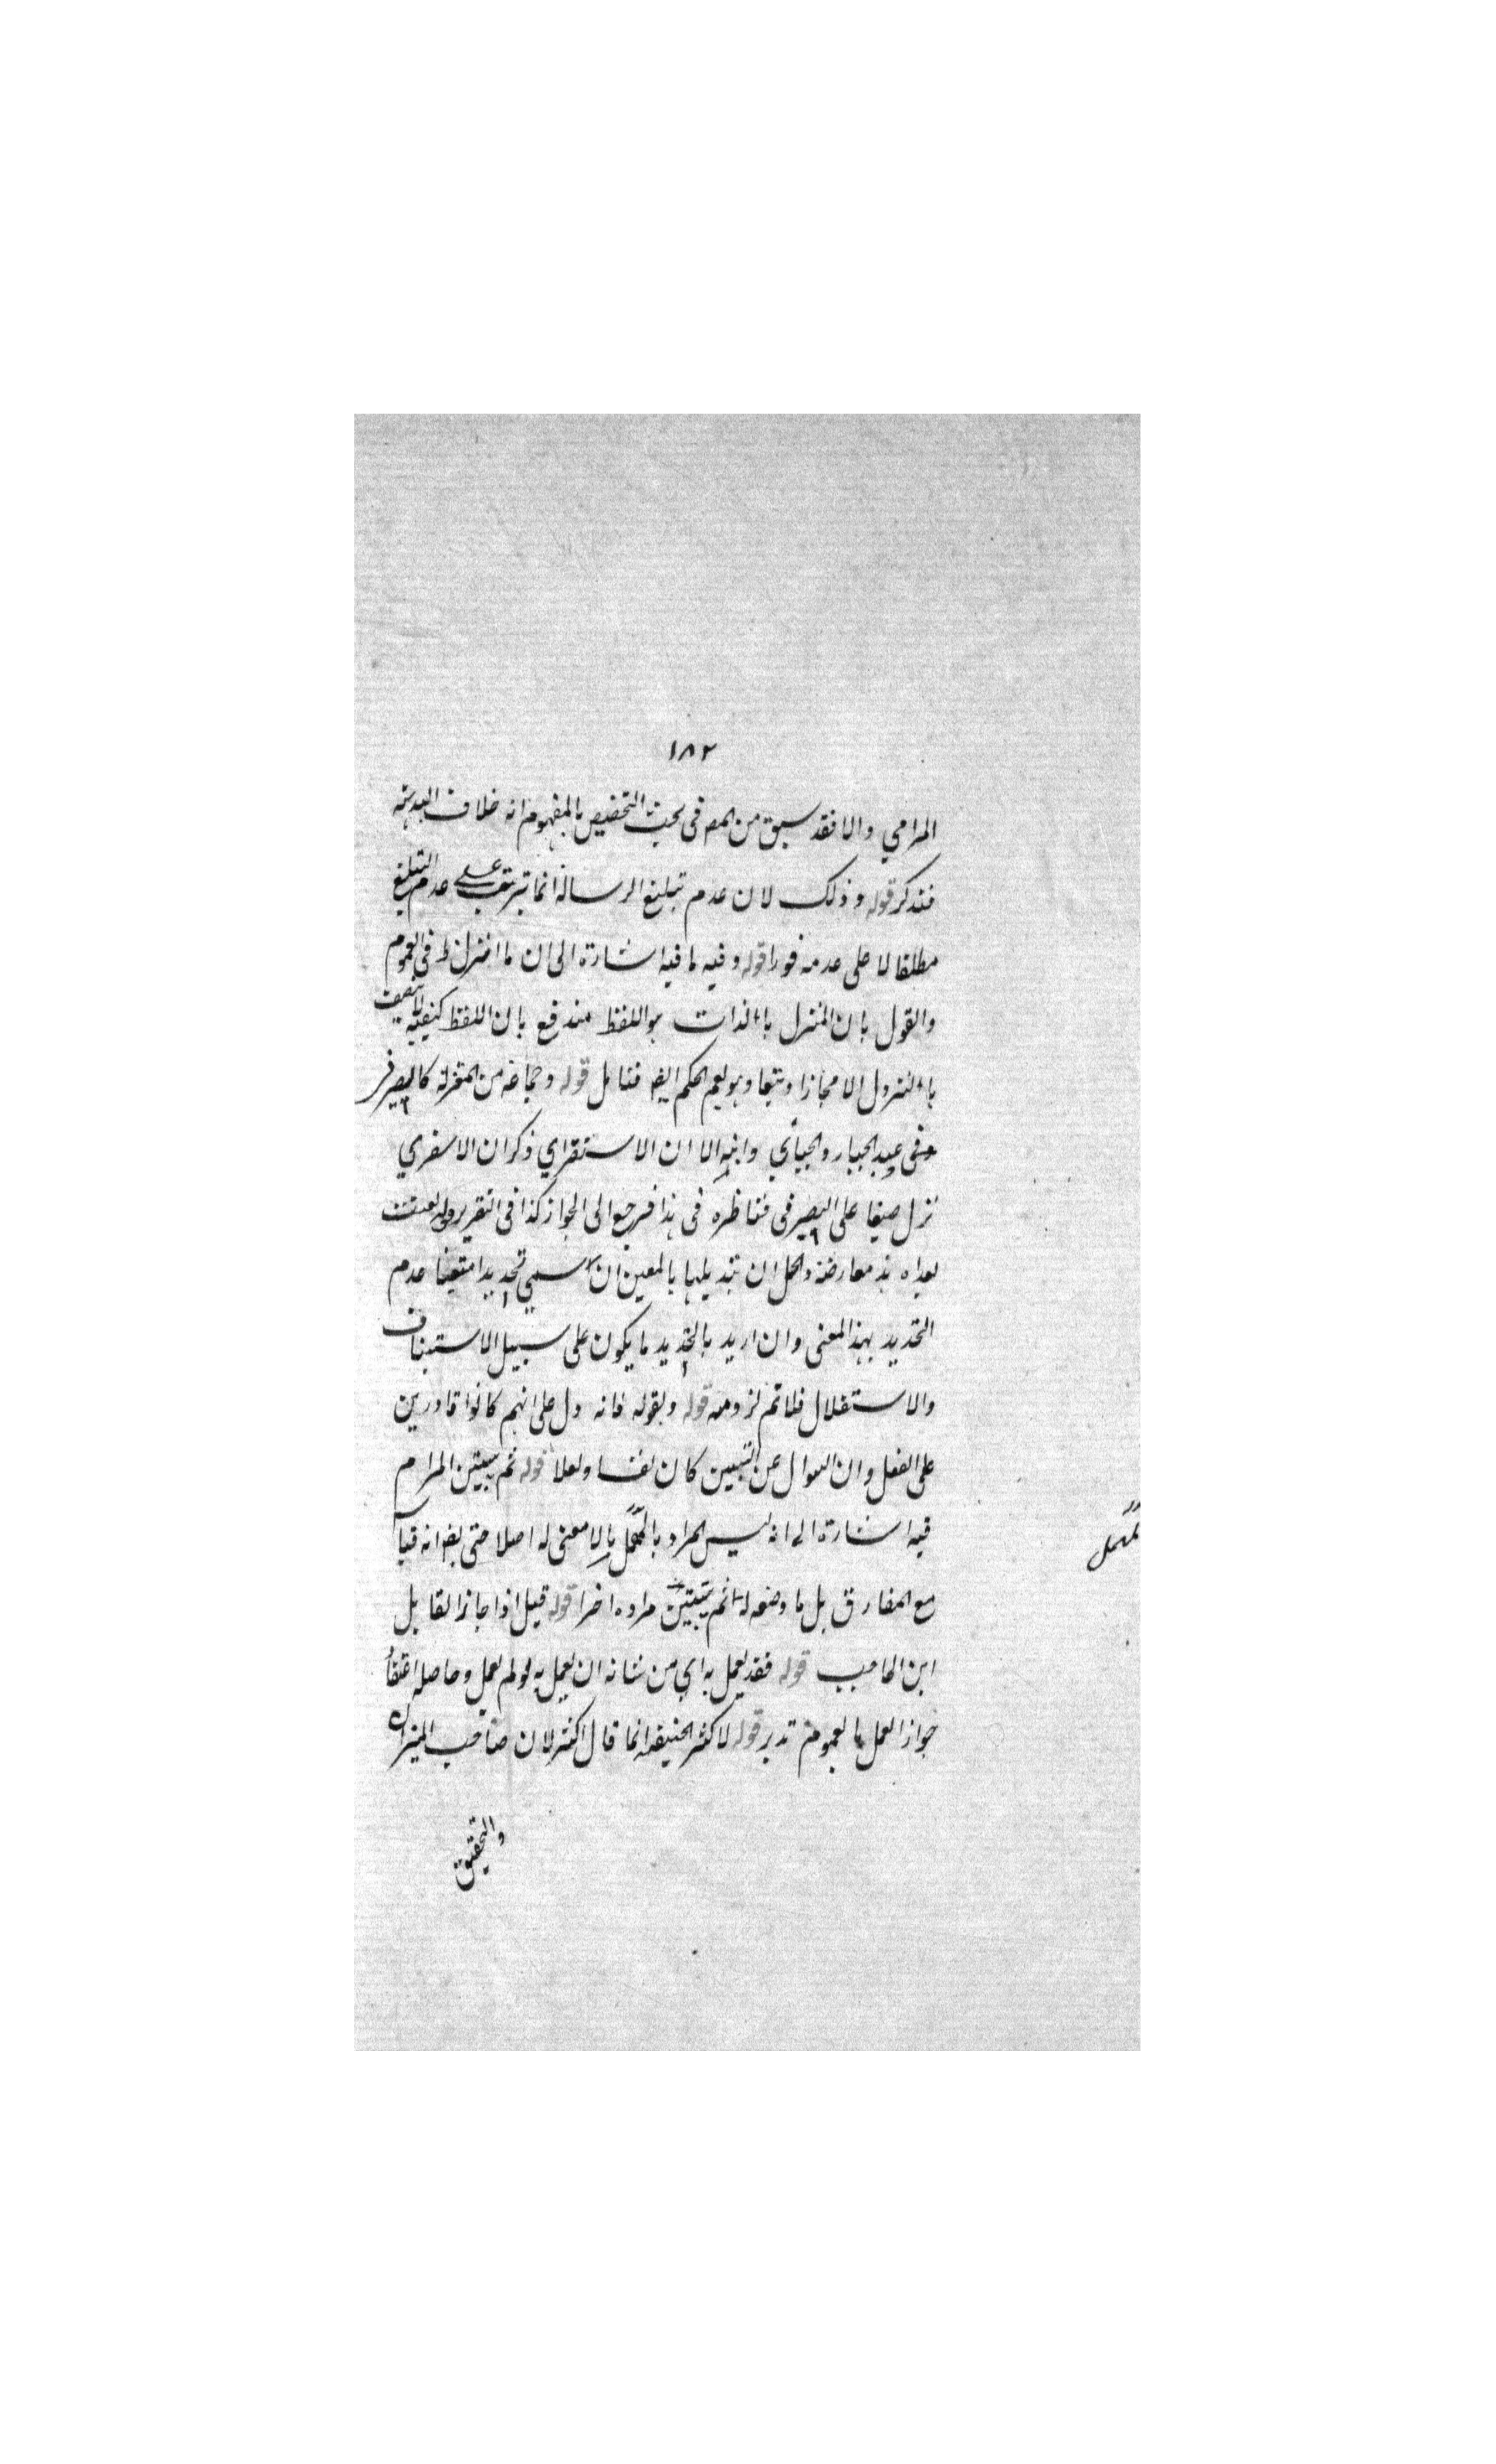 ١٨٢
المرامي والا فقد سبق من المص في بحث التخصيص بالمفهوم انه خلاف البديهة
فتذكر قوله وذلك لان عدم تبليغ الرسالة انما يترتب على عدم التبليغ
مطلقا لا على عدمه فورا قوله وفيه ما فيه اشارة الى ان ما انزل ظ في العموم
والقول بان المنزل بالذات هو اللفظ مندفع بان اللفظ كيفية لا يتصف
بالنزول الا مجازا وتبعا وهو يعم الحكم ايضا فتامل قوله وجماعة من المعتزلة كالصيرفي
وفي عبد الجبار والجبائي وابنه الا ان الاستقراي ذكر ان الاسفري
نزل ضيفا على الصيرفي فناظره في هذا فرجع الى الجواز كذا في التقرير قوله
بعداه هذه معارضة والحل ان تبديلها بالمعين ان سمي تحديدا متعينا عدم
التحديد بهذا المعنى وان اريد بالتحديد ما يكون على سبيل الاستيناف
والاستقلال فلا تم لزومه قوله وبقوله فانه دل على انهم كانوا قادرين
على الفعل وان السوال عن التبيين كان تعنتا وتعللا قوله ثم يبين المرام
فيه اشارة الى انه ليس المراد بالمهمل ما لا معنى له اصلا حتى يقو انه قياس
مع الفارق بل ما وضعه له ثم يبين مراده اخرا قوله قيل اذا جاز القايل
ابن الحاجب قوله فقد يعمل به اي من شانه ان يعمل به لو لم يعمل وحاصله اعتقاد
جواز العمل بالعموم تدبر قوله لاكثر الحنيفة انما قال اكثر لان صاحب الميزان
والتحقيق
لمهمل